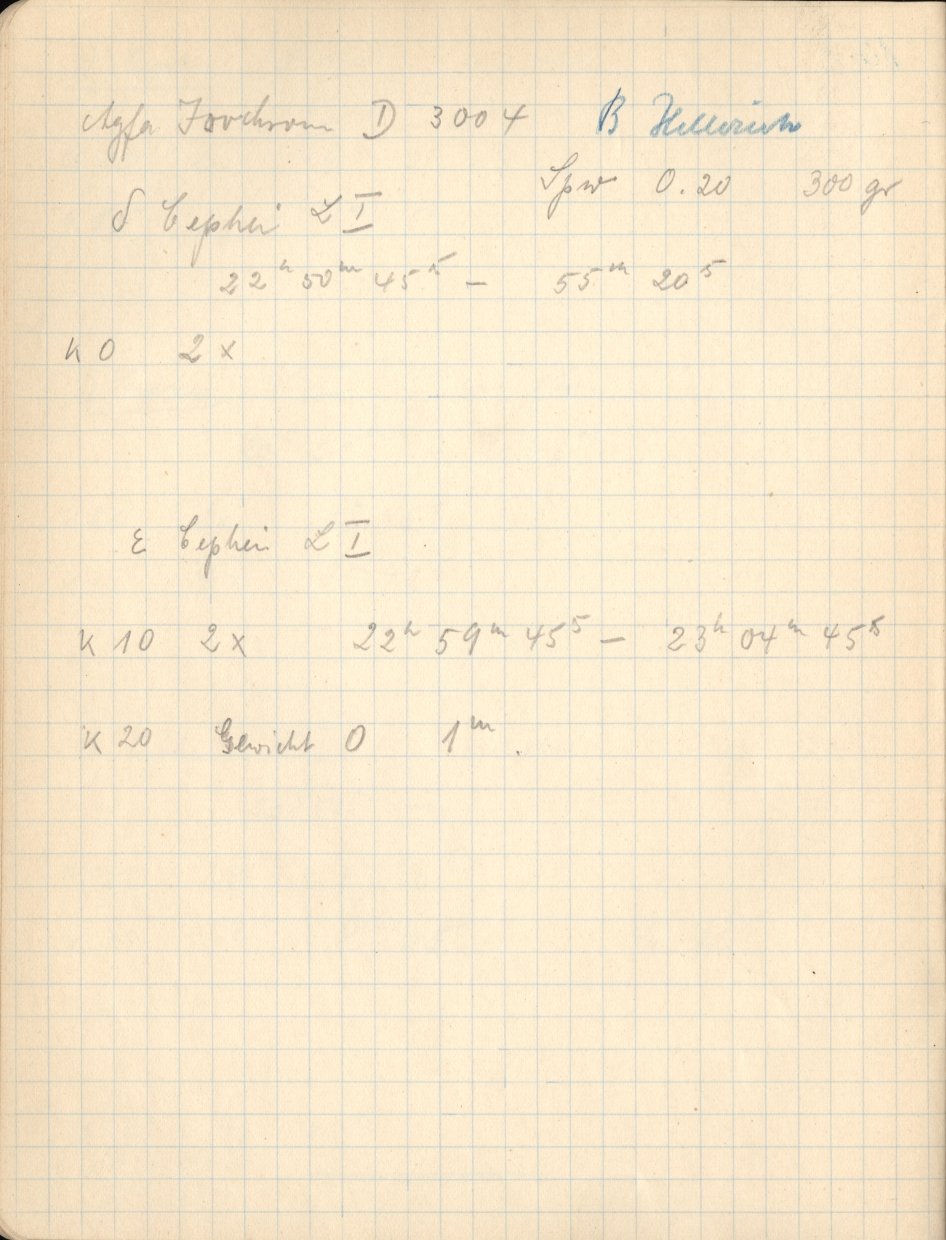 Agfa Isochrom D 3004 B Hellerich
Spw 0.20 300 gr
δ Cephei L I
22ʰ 50ᵐ 45ˢ – 55ᵐ 20ˢ
K 0 2 x
ε Cephei L I
K 10 2 x 22ʰ 59ᵐ 45ˢ – 23ʰ 04ᵐ 45ˢ
K 20 Gewicht 0 1ᵐ.